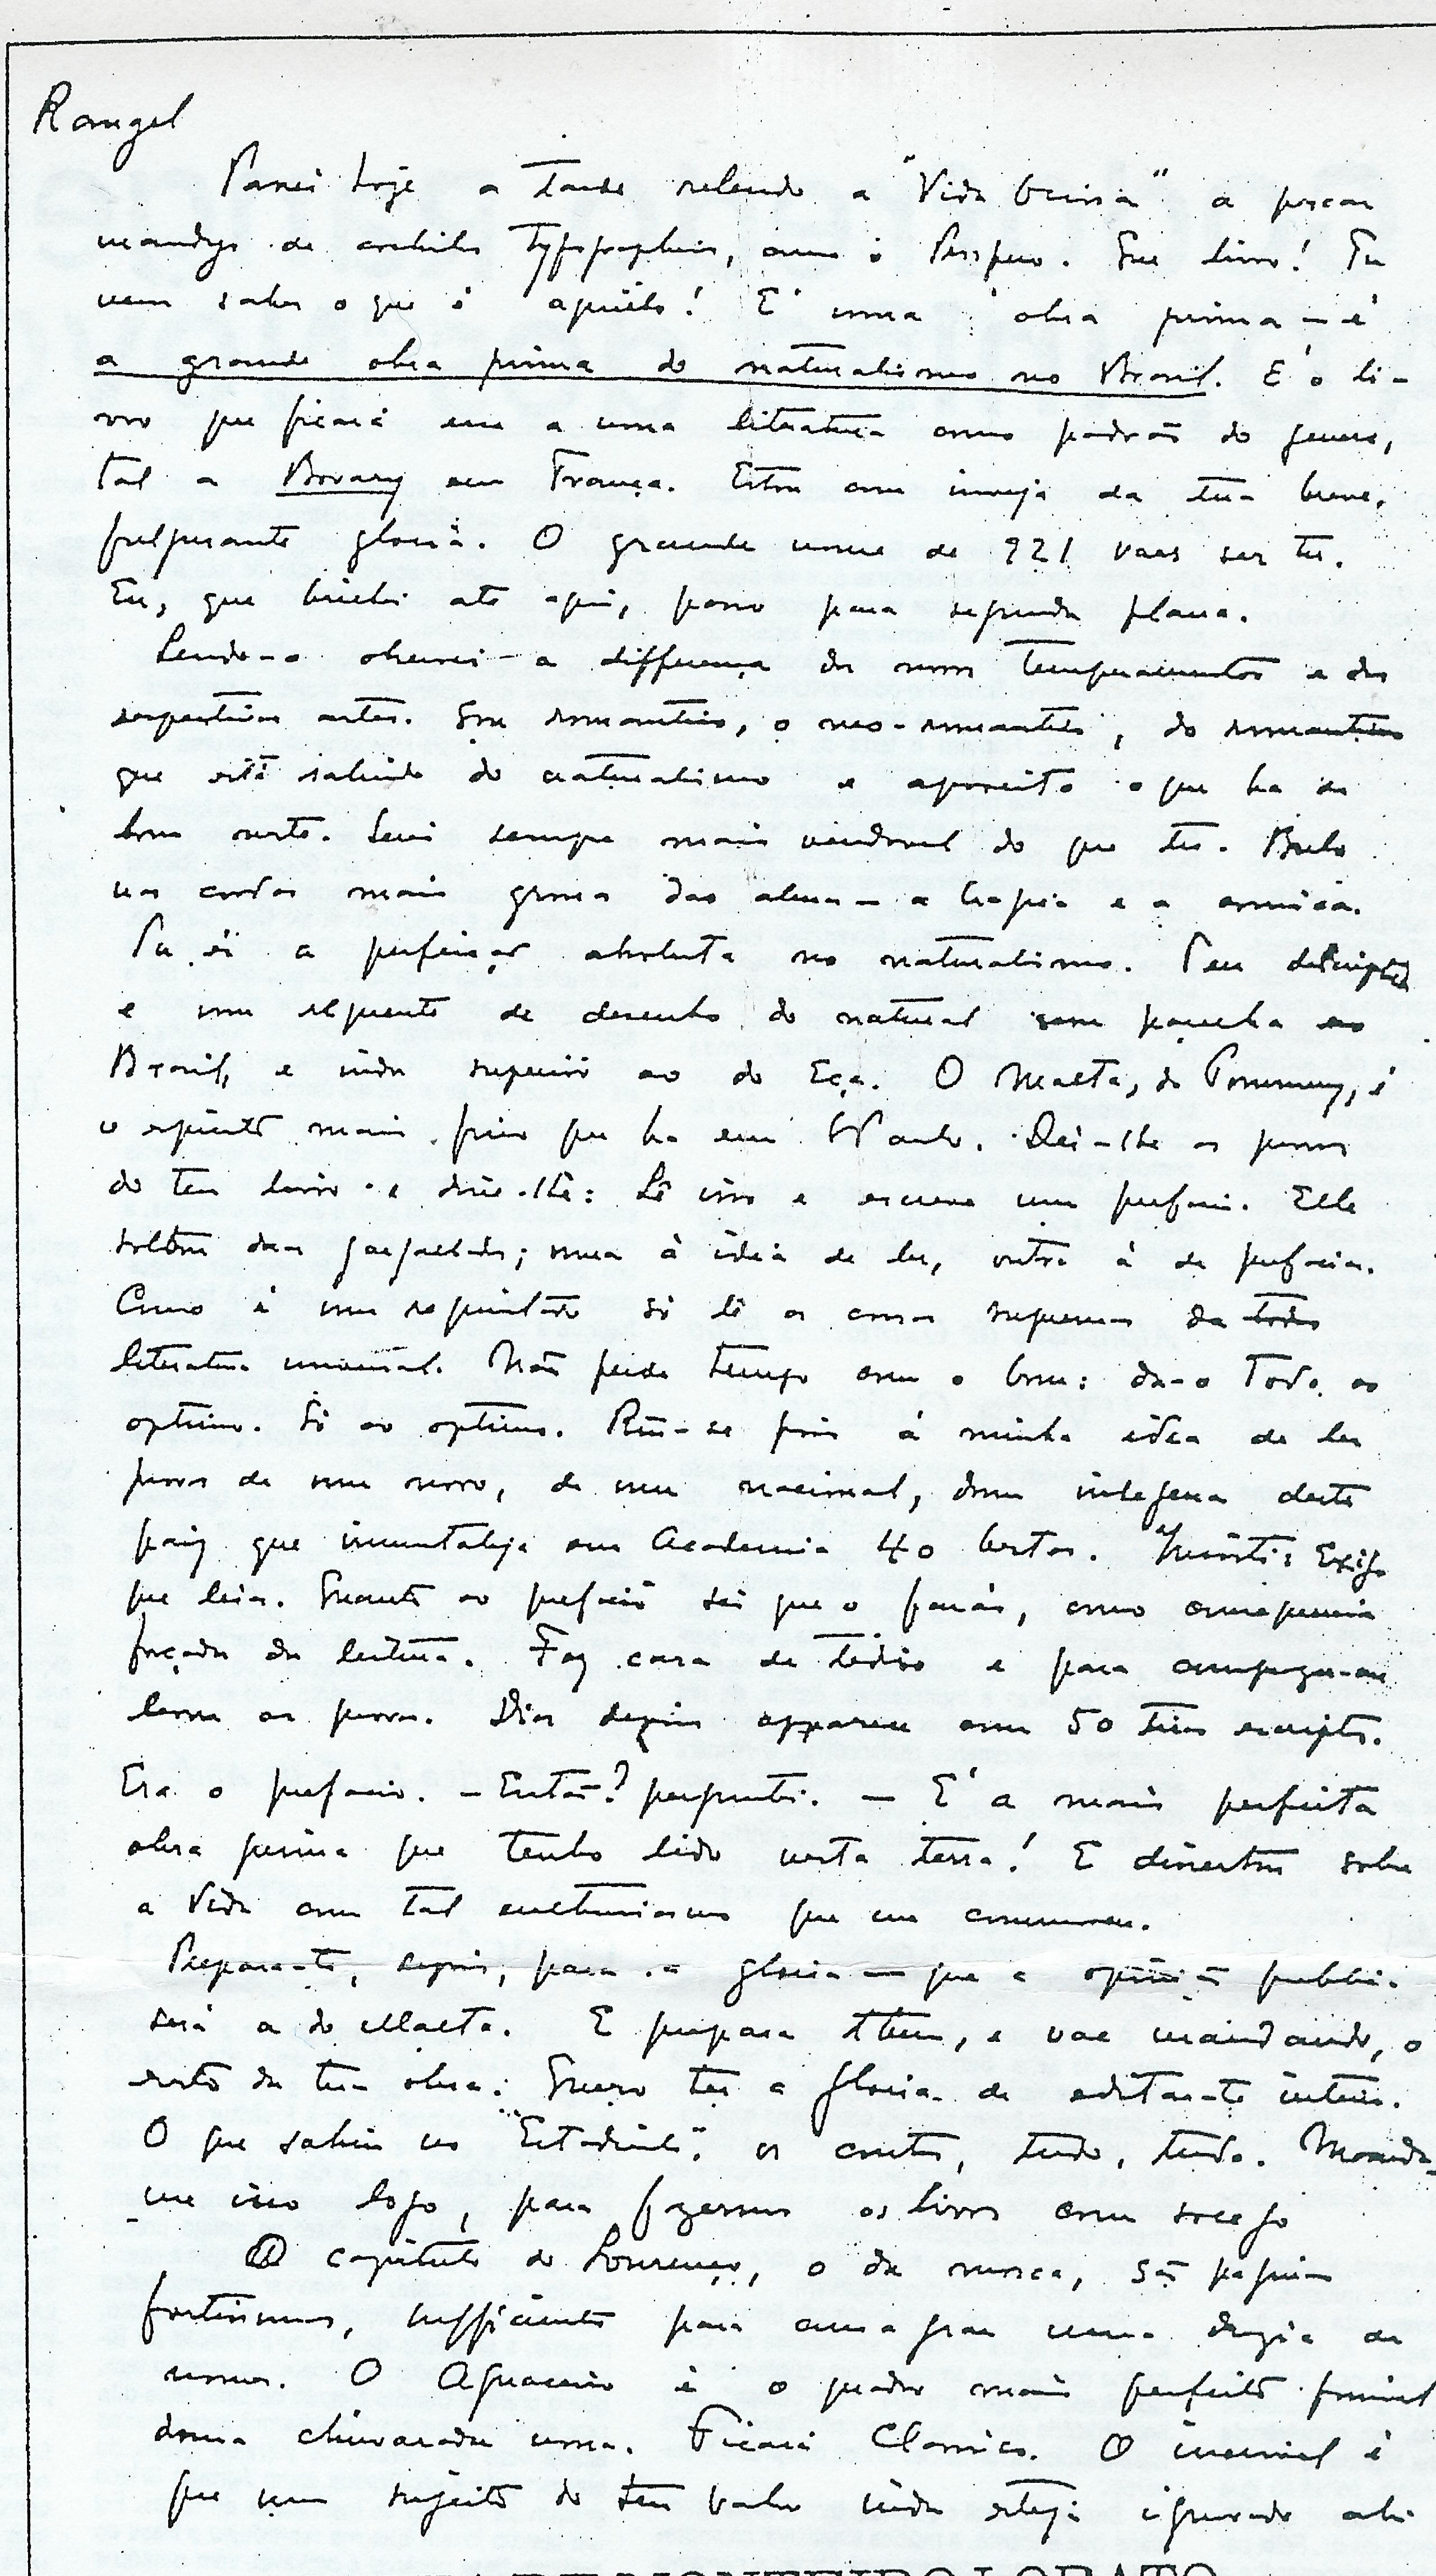 Rangel
Passei hoje a tarde relendo a "Vida Ociosa" a pescar
de cochilos typographicos, como o Prospero. Que livro! Tu
nem sabes o que é aquillo! E' uma obra prima — é
a grande obra prima do naturalismo no Brasil. E' o li-
vro que ficará em a nossa literatura como padrão do genero,
tal a Bovary em França. Estou com inveja da tua breve,
fulgurante gloria. O grande nome de 921 vaes ser tu.
Eu, que brilhei até aqui, passo para segundo plano.
Lendo-o observei a differença de nossos temperamentos e das
respectivas artes. Sou romantico, o neo-romantico, do romantismo
que está sahindo do naturalismo e aproveita o que ha de
bom neste. Serei sempre mais vendavel do que tu. Bulo
nas cordas mais grossas das almas — a tragica e a comica.
Tu és a perfeição absoluta no naturalismo. Teu
é um requinte de desenho do natural sem parelha no
Brasil, e inda superior ao do Eça. O Maeta, do Pommery, é
o espirito mais fino que ha em S Paulo. Dei-lhe as provas
do teu livro e disse-lhe: Lê isso e escreve um prefacio. Elle
soltou duas gargalhadas; uma á ideia de ler, outra á de prefaciar.
Como é um requintado só lê as cousas supremas da toda
literatura universal. Não perde tempo com o bom: da-o todo ao
optimo. Só ao optimo. Riu-se pois á minha idea de ler
provas de um novo, de um nacional, dum indigena deste
paiz que immortaliza em Academia 40 bestas. Insisti: Exijo
que leia. Quanto ao prefacio sei que o farás, como consequencia
forçada da leitura. Fez cara de tedio e para comprazer-me
levou as provas. Dias depois appareceu com 50 tiras escriptas.
Era o prefacio. — Então? perguntei. — E' a mais perfeita
obra prima que tenho lido nesta terra! E dissertou sobre
a Vida com tal enthusiasmo que me commoveu.
Prepara-te, depois, para a gloria — que a opinião publica
será a do Maeta. E prepara tbem, e vae mandando, o
resto da tua obra. Quero ter a gloria de editar-te inteiro.
O que sahiu no "Estadinho", os contos, tudo, tudo. Manda-
me isso logo, para fazermos os livros com socego
O capitulo do Lourenço, o da mosca, são paginas
fortissimas, sufficientes para consagrar uma duzia de
nomes. O Aguaceiro é o quadro mais perfeito possivel
duma chuvarada nossa. Ficará Classico. O incrivel é
que um sujeito do teu valor inda esteja ignorado ahi